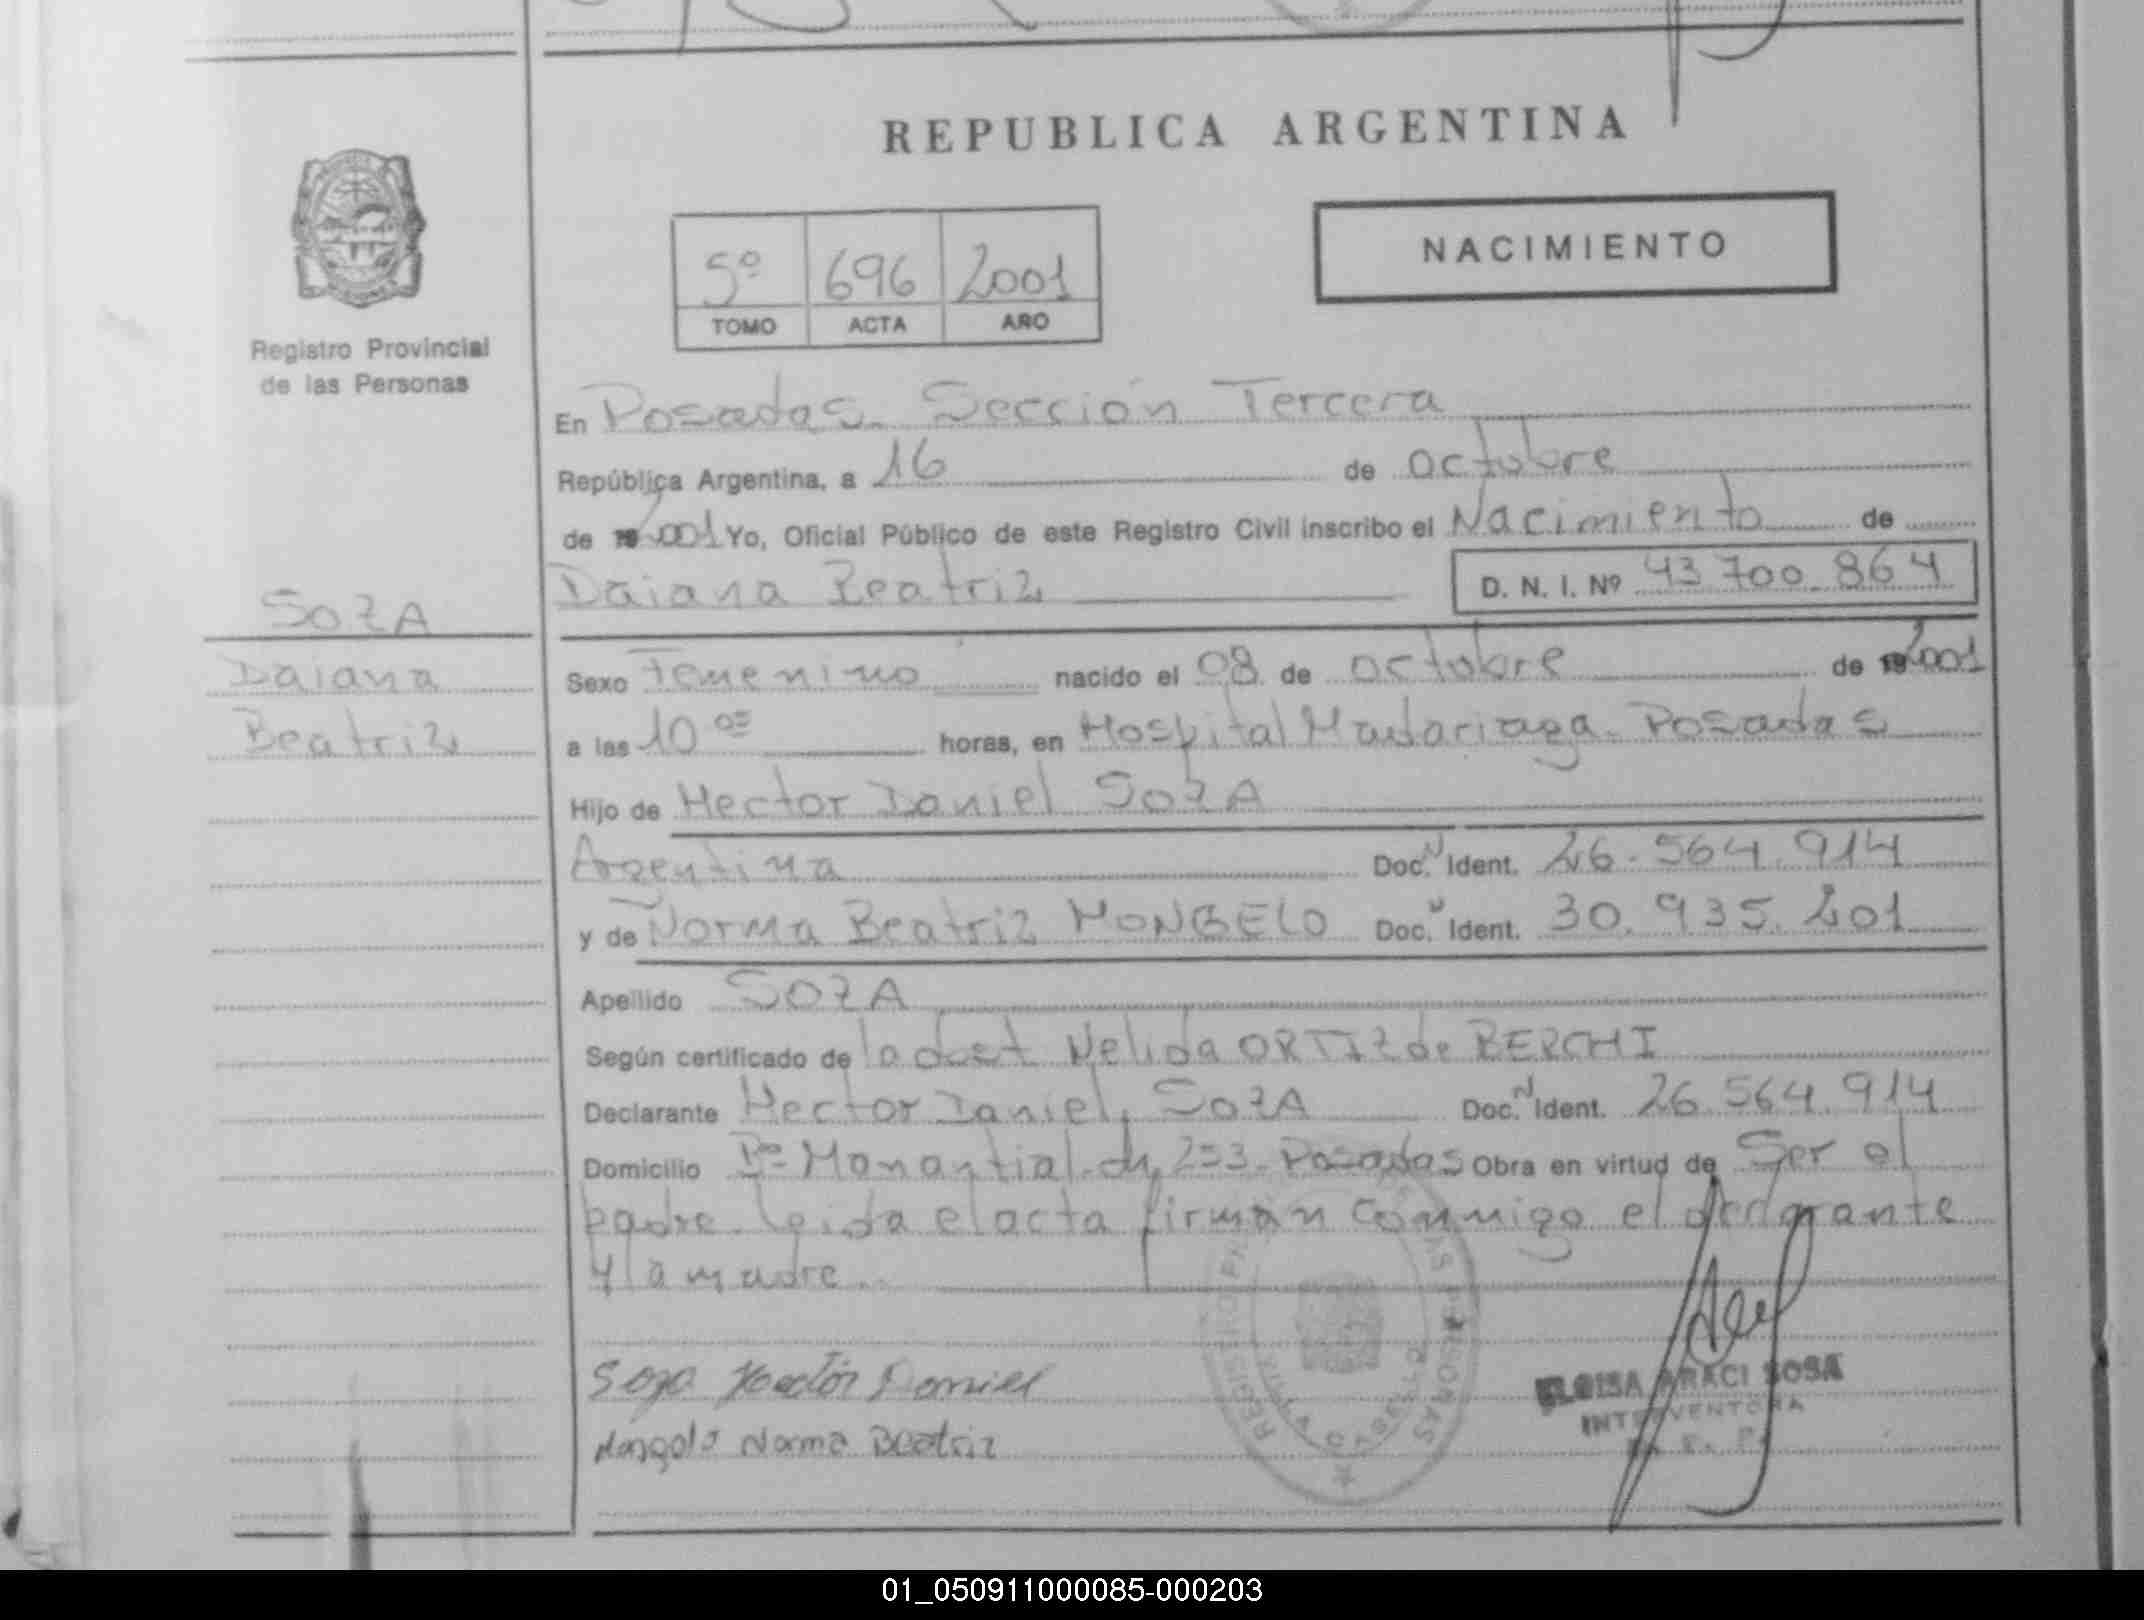 REPUBLICA ARGENTINA
NACIMIENTO
5º 696 2001
TOMO ACTA AÑO
Registro Provincial
de las Personas
En Posadas. Sección Tercera
República Argentina, a 16 de octubre
de 19 2001 Yo, Oficial Público de este Registro Civil inscribo el Nacimiento de
Daiana Beatriz D. N. I. Nº 43 700 864
SOZA
Daiana
Beatriz
Sexo Femenino nacido el 08 de octubre de 19 2001
a las 10 horas, en Hospital Madariaga. Posadas
Hijo de Hector Daniel SOZA
Argentina Doc. N Ident. 26.564.914
y de Norma Beatriz MONGELO Doc. N Ident. 30.935.201
Apellido SOZA
Según certificado de la obst Nelida ORTIZ de BERCHI
Declarante Hector Daniel, SOZA Doc. N Ident. 26.564.914
Domicilio Bº Manantial. ch, 253. Posadas Obra en virtud de Ser el
padre. Leida el acta firman conmigo el declarante
y la madre.
Soza Hector Daniel
Mongelo Norma Beatriz
ELOISA ARACI SOSA
INTERVENTORA
01_050911000085-000203